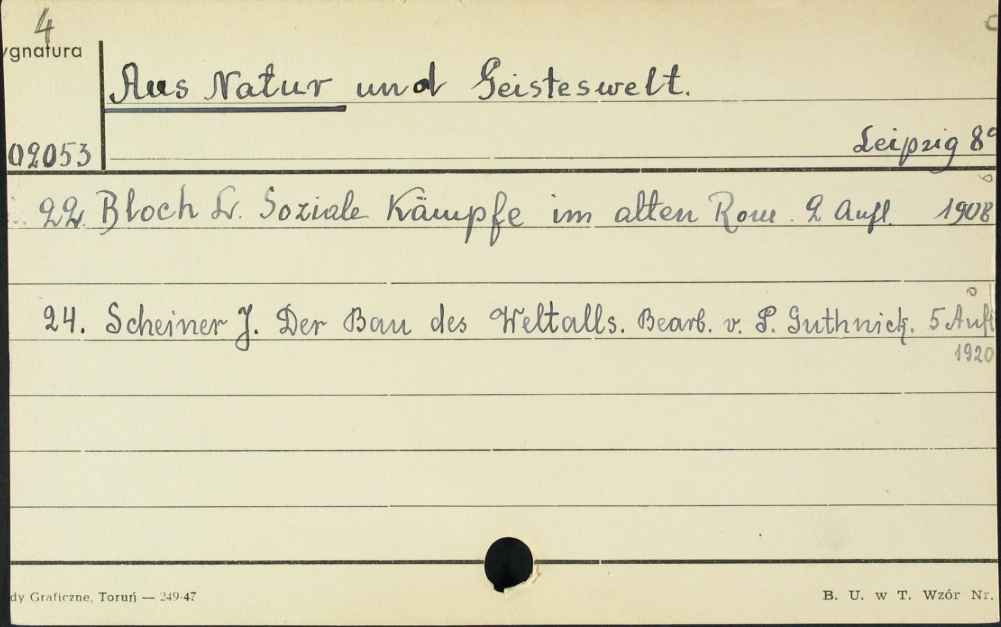 4
ygnatura
Aus Natur und Geisteswelt.
02053
Leipzig 8°
22. Bloch L. Soziale Kämpfe im alten Rom. 2 Aufl. 1908
24. Scheiner J. Der Bau des Weltalls. Bearb. v. P. Guthnick. 5 Aufl
1920
dy Graficzne, Toruń — 249-47
B. U. w T. Wzór Nr.